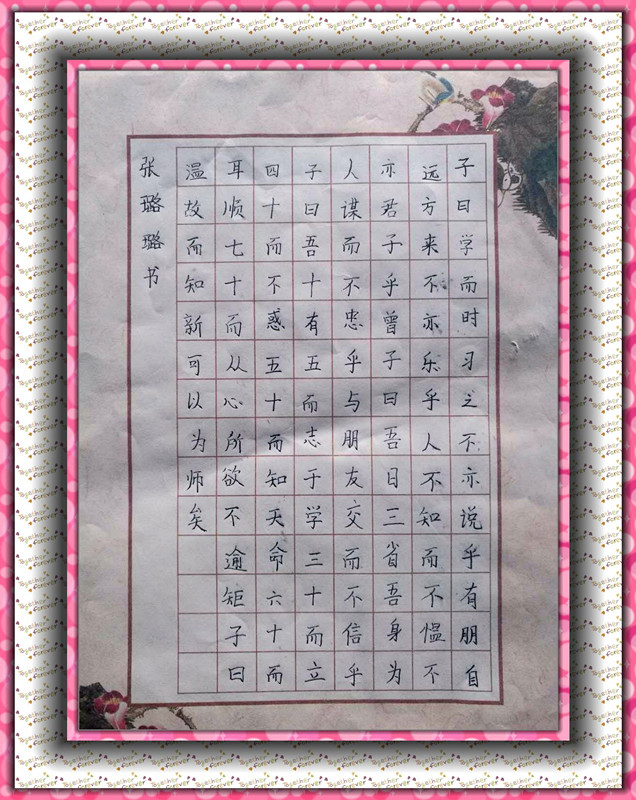 子曰学而时习之不亦说乎有朋自
远方来不亦乐乎人不知而不愠不
亦君子乎曾子曰吾日三省吾身为
人谋而不忠乎与朋友交而不信乎
子曰吾十有五而志于学三十而立
四十而不惑五十而知天命六十而
耳顺七十而从心所欲不逾矩子曰
温故而知新可以为师矣
张璐璐书
Together
Forever